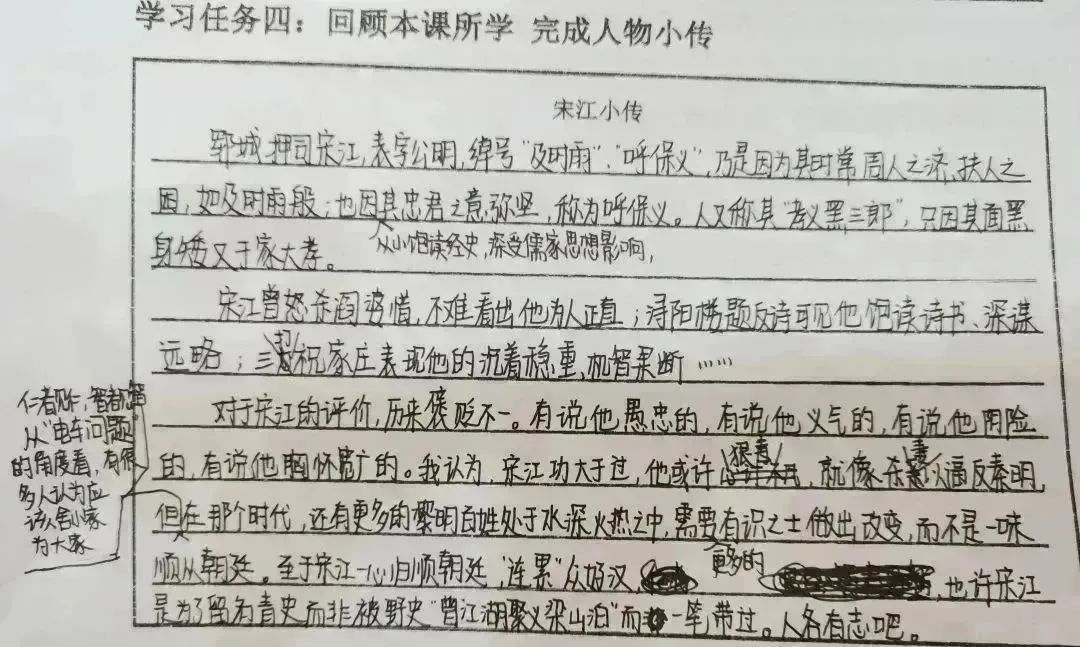 学习任务四：回顾本课所学 完成人物小传
宋江小传
郓城押司宋江，表字公明，绰号"及时雨"、"呼保义"，乃是因为其时常周人之济、扶人之
困，如及时雨般；也因其忠君之意弥坚，称为呼保义。人又称其"孝义黑三郎"，只因其面黑
从小饱读经史，深受儒家思想影响，
身矮又于家大孝。
宋江曾怒杀阎婆惜，不难看出他为人正直；浔阳楼题反诗可见他饱读诗书、深谋
远略；三打祝家庄表现他的沉着稳重，机智果断……
对于宋江的评价，历来褒贬不一。有说他愚忠的，有说他义气的，有说他阴险
的，有说他胸怀宽广的。我认为，宋江功大于过，他或许狠毒，就像杀妻以逼反秦明，
但在那个时代，还有更多的黎明百姓处于水深火热之中，需要有识之士做出改变，而不是一味
更多的
顺从朝廷。至于宋江一心归顺朝廷，"连累"众好汉，也许宋江
是为了留名青史而非被野史"曾江湖聚义梁山泊"而一笔带过。人各有志吧。
仁者见仁，智者见智
从"电车问题"
的角度看，有很
多人认为应
该舍小家
为大家